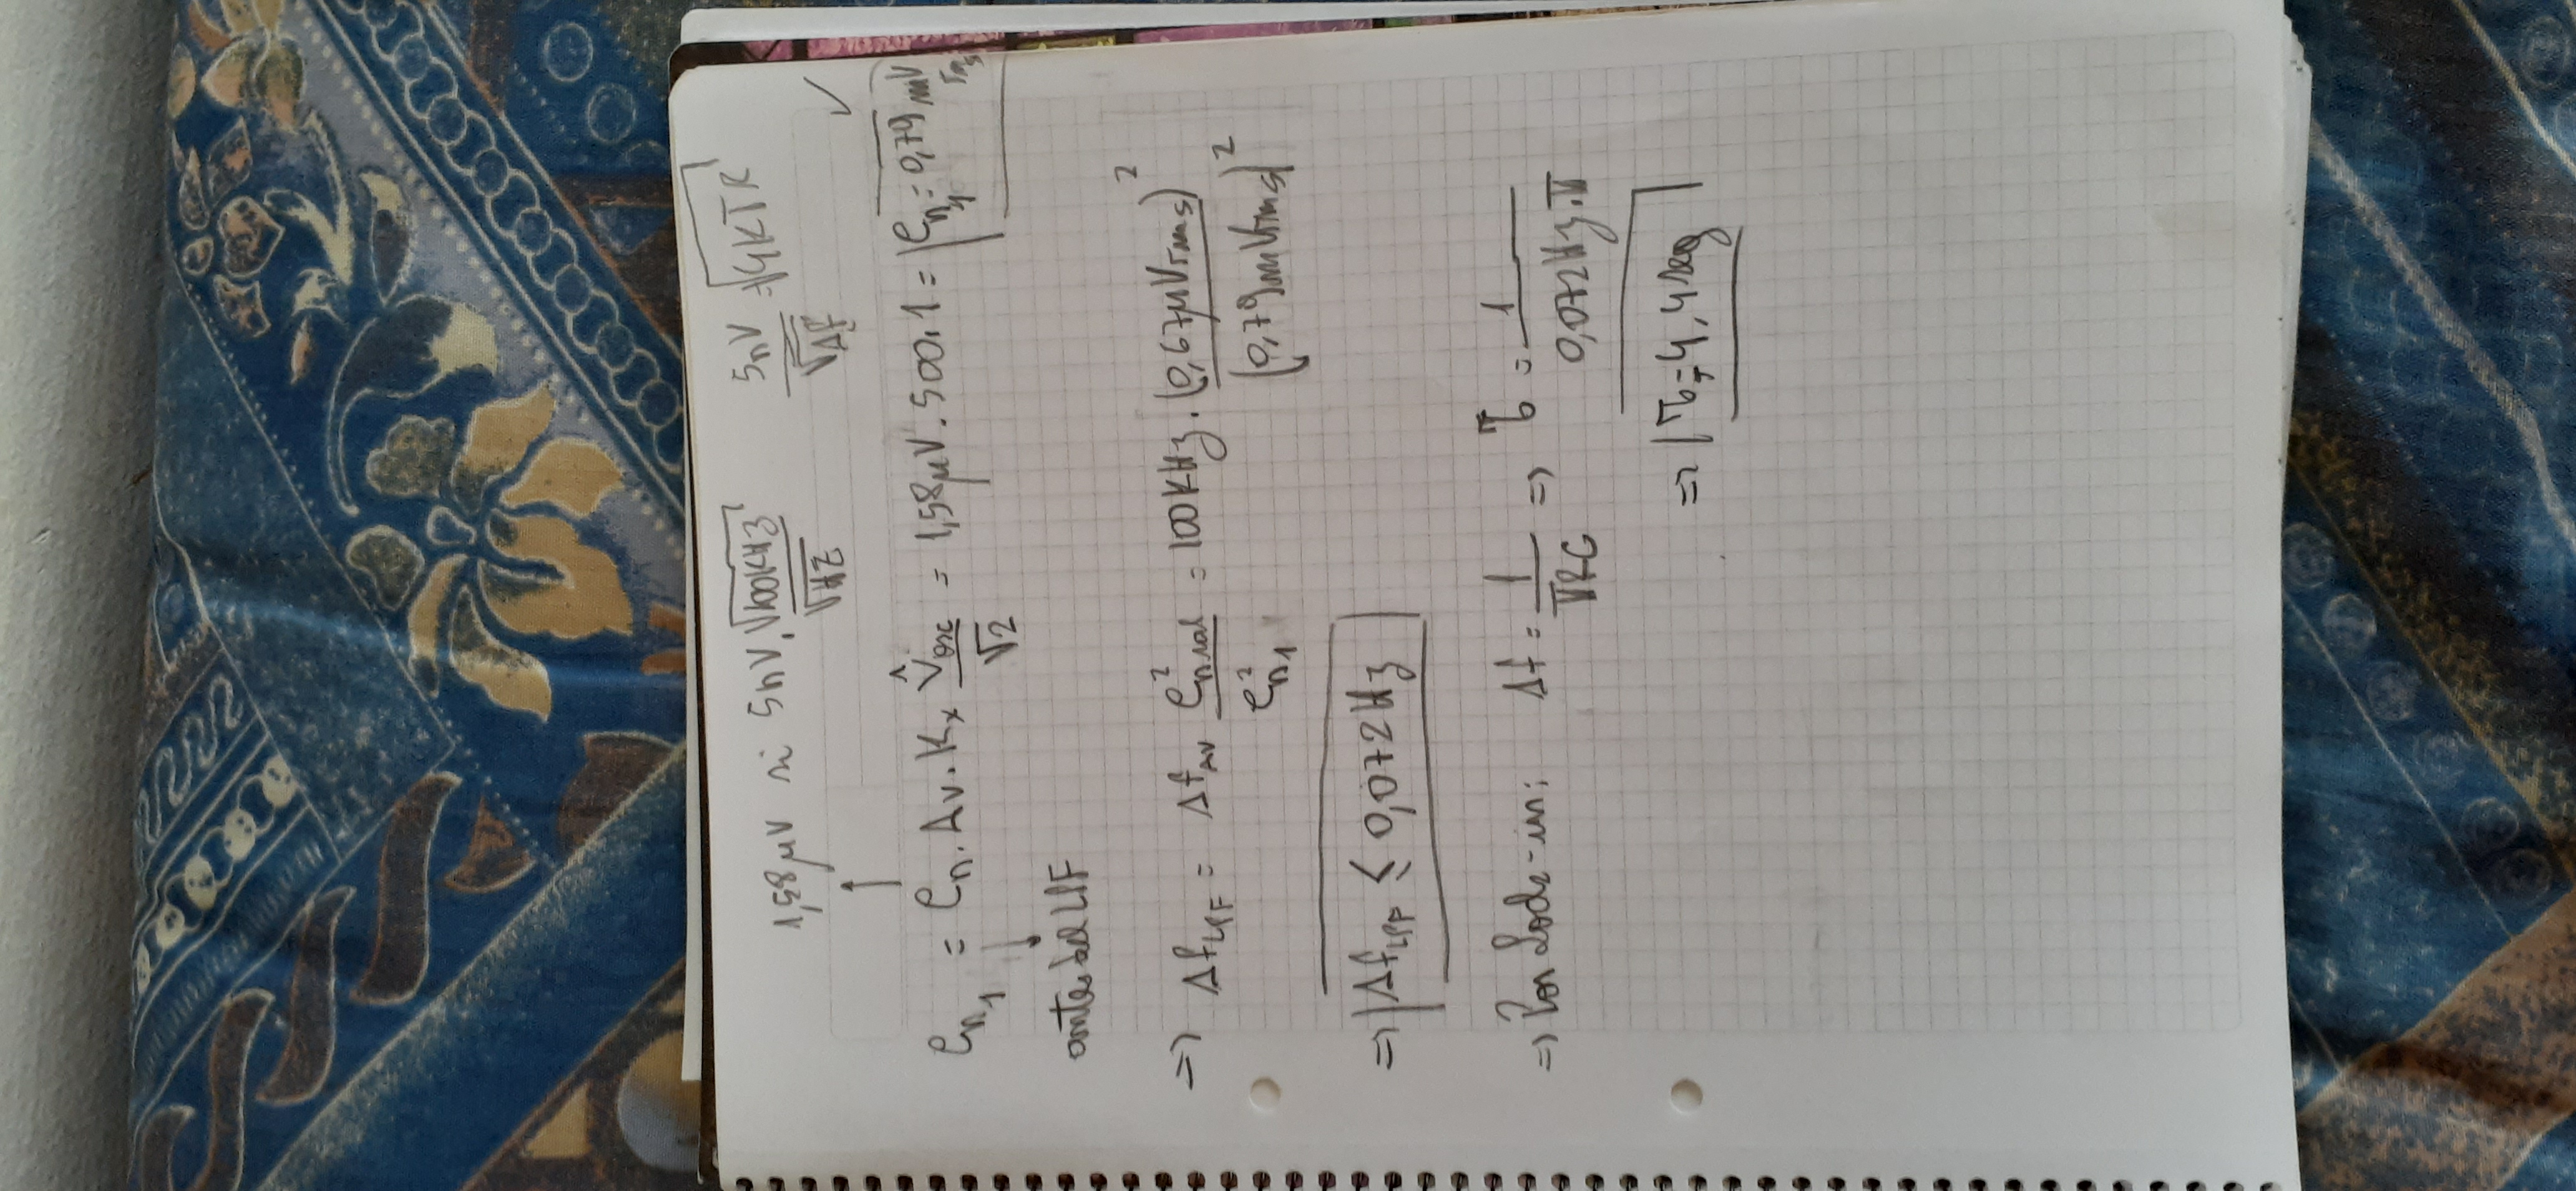 1,58μV ≈ 5nV.√100KHz/√HZ 5nV/√Δf = √4KTR
e_n1 = e_n. Av. Kx V̂osc/√2 = 1,58μV. 500. 1 = |e_n1 = 0,79 mV rms ✓
antes del LPF
=> Δf_LPF = Δf_AV e²_n sal / e²_n1 = 100KHz. (0,67μVrms)² / (0,79mVrms)²
=> Δf_LPF ≤ 0,072Hz
=> Por Lock-in: Δf = 1/πRC => τ = 1/0,072Hz.π
=> τ = 4,4seg